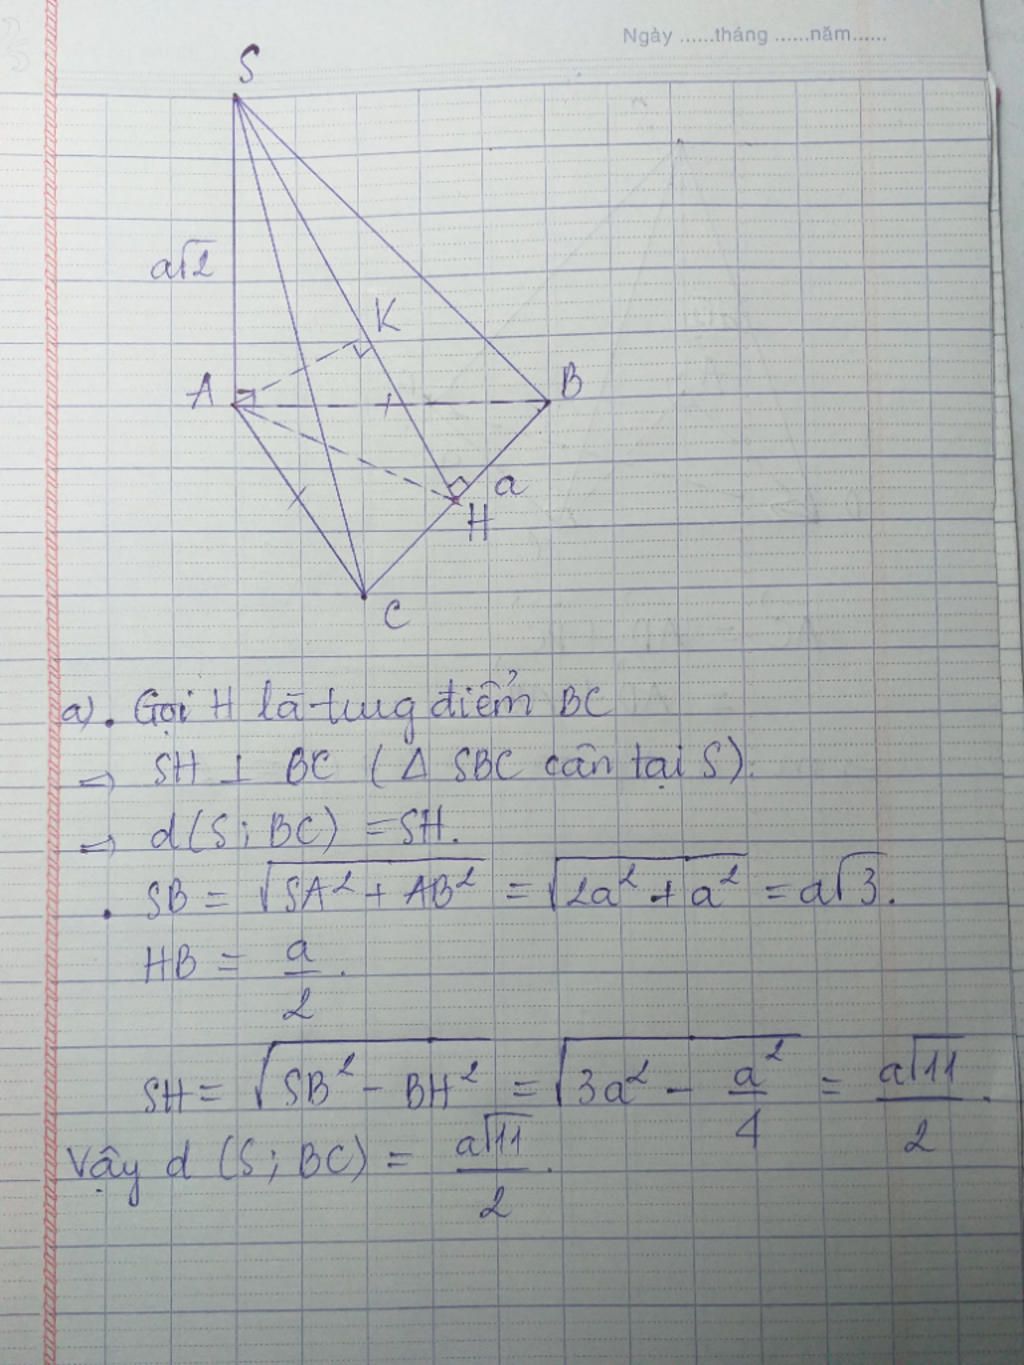 Ngày ......tháng ......năm......
S
a√2
K
A
B
a
H
C
a). Gọi H là trung điểm BC
=> SH ⊥ BC (Δ SBC cân tại S).
=> d(S; BC) = SH.
. SB = √(SA² + AB²) = √(2a² + a²) = a√3.
HB = a/2.
SH = √(SB² - BH²) = √(3a² - a²/4) = a√11/2.
Vậy d (S; BC) = a√11/2.